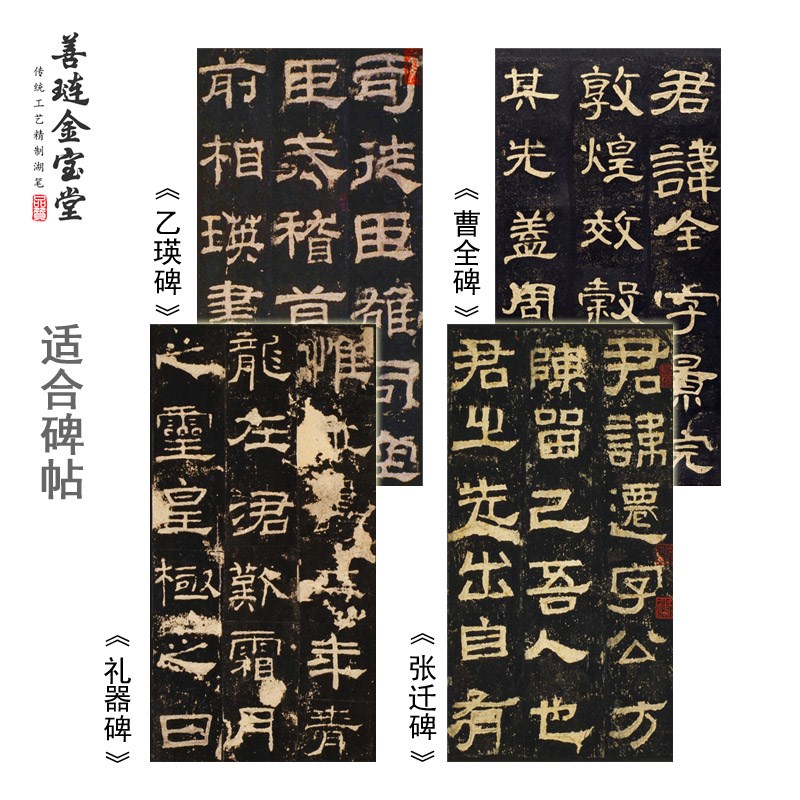 善琏金宝堂
传统工艺精制湖笔
适合碑帖
《乙瑛碑》
司徒臣雄司空
臣戒稽首
前相瑛書
《曹全碑》
君諱全字景完
敦煌效穀
其先蓋周
《礼器碑》
惟年青
龍在涒歎霜月
之靈皇極之日
《张迁碑》
君諱遷字公方
陳留己吾人也
君之先出自有